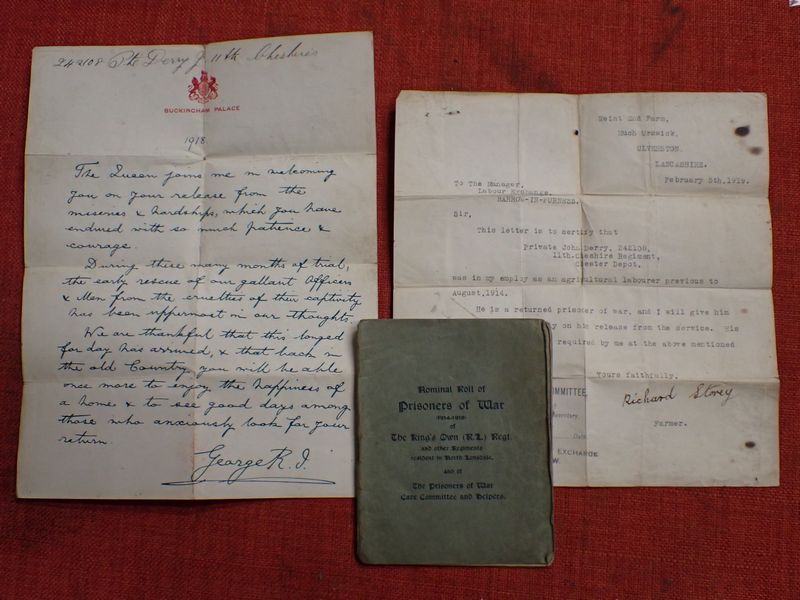 242108 Pte Derry J 11th Cheshires
BUCKINGHAM PALACE
1918.
The Queen joins me in welcoming
you on your release from the
miseries & hardships, which you have
endured with so much patience &
courage.
During these many months of trial,
the early rescue of our gallant Officers
& Men from the cruelties of their captivity
has been uppermost in our thoughts.
We are thankful that this longed
for day has arrived, & that back in
the old Country you will be able
once more to enjoy the happiness of
a home & to see good days among
those who anxiously look for your
return.
George R.I.
End Farm,
Much Urswick,
ULVERSTON.
LANCASHIRE.
February 5th,1919.
To The Manager,
Labour Exchange,
BARROW-IN-FURNESS.
Sir,
This letter is to certify that
Private John Derry, 242108,
11th.Cheshire Regiment,
Chester Depot.
was in my employ as an agricultural labourer previous to
August,1914.
He is a returned prisoner of war, and I will give him
on his release from the service. His
required by me at the above mentioned
Yours faithfully,
Richard Storey
Farmer.
COMMITTEE
Secretary.
Date
EXCHANGE
Nominal Roll of
Prisoners of War
(1914-1918)
of
The King's Own (R.L.) Regt.
and other Regiments
resident in North Lonsdale,
and of
The Prisoners of War
Care Committee and Helpers.